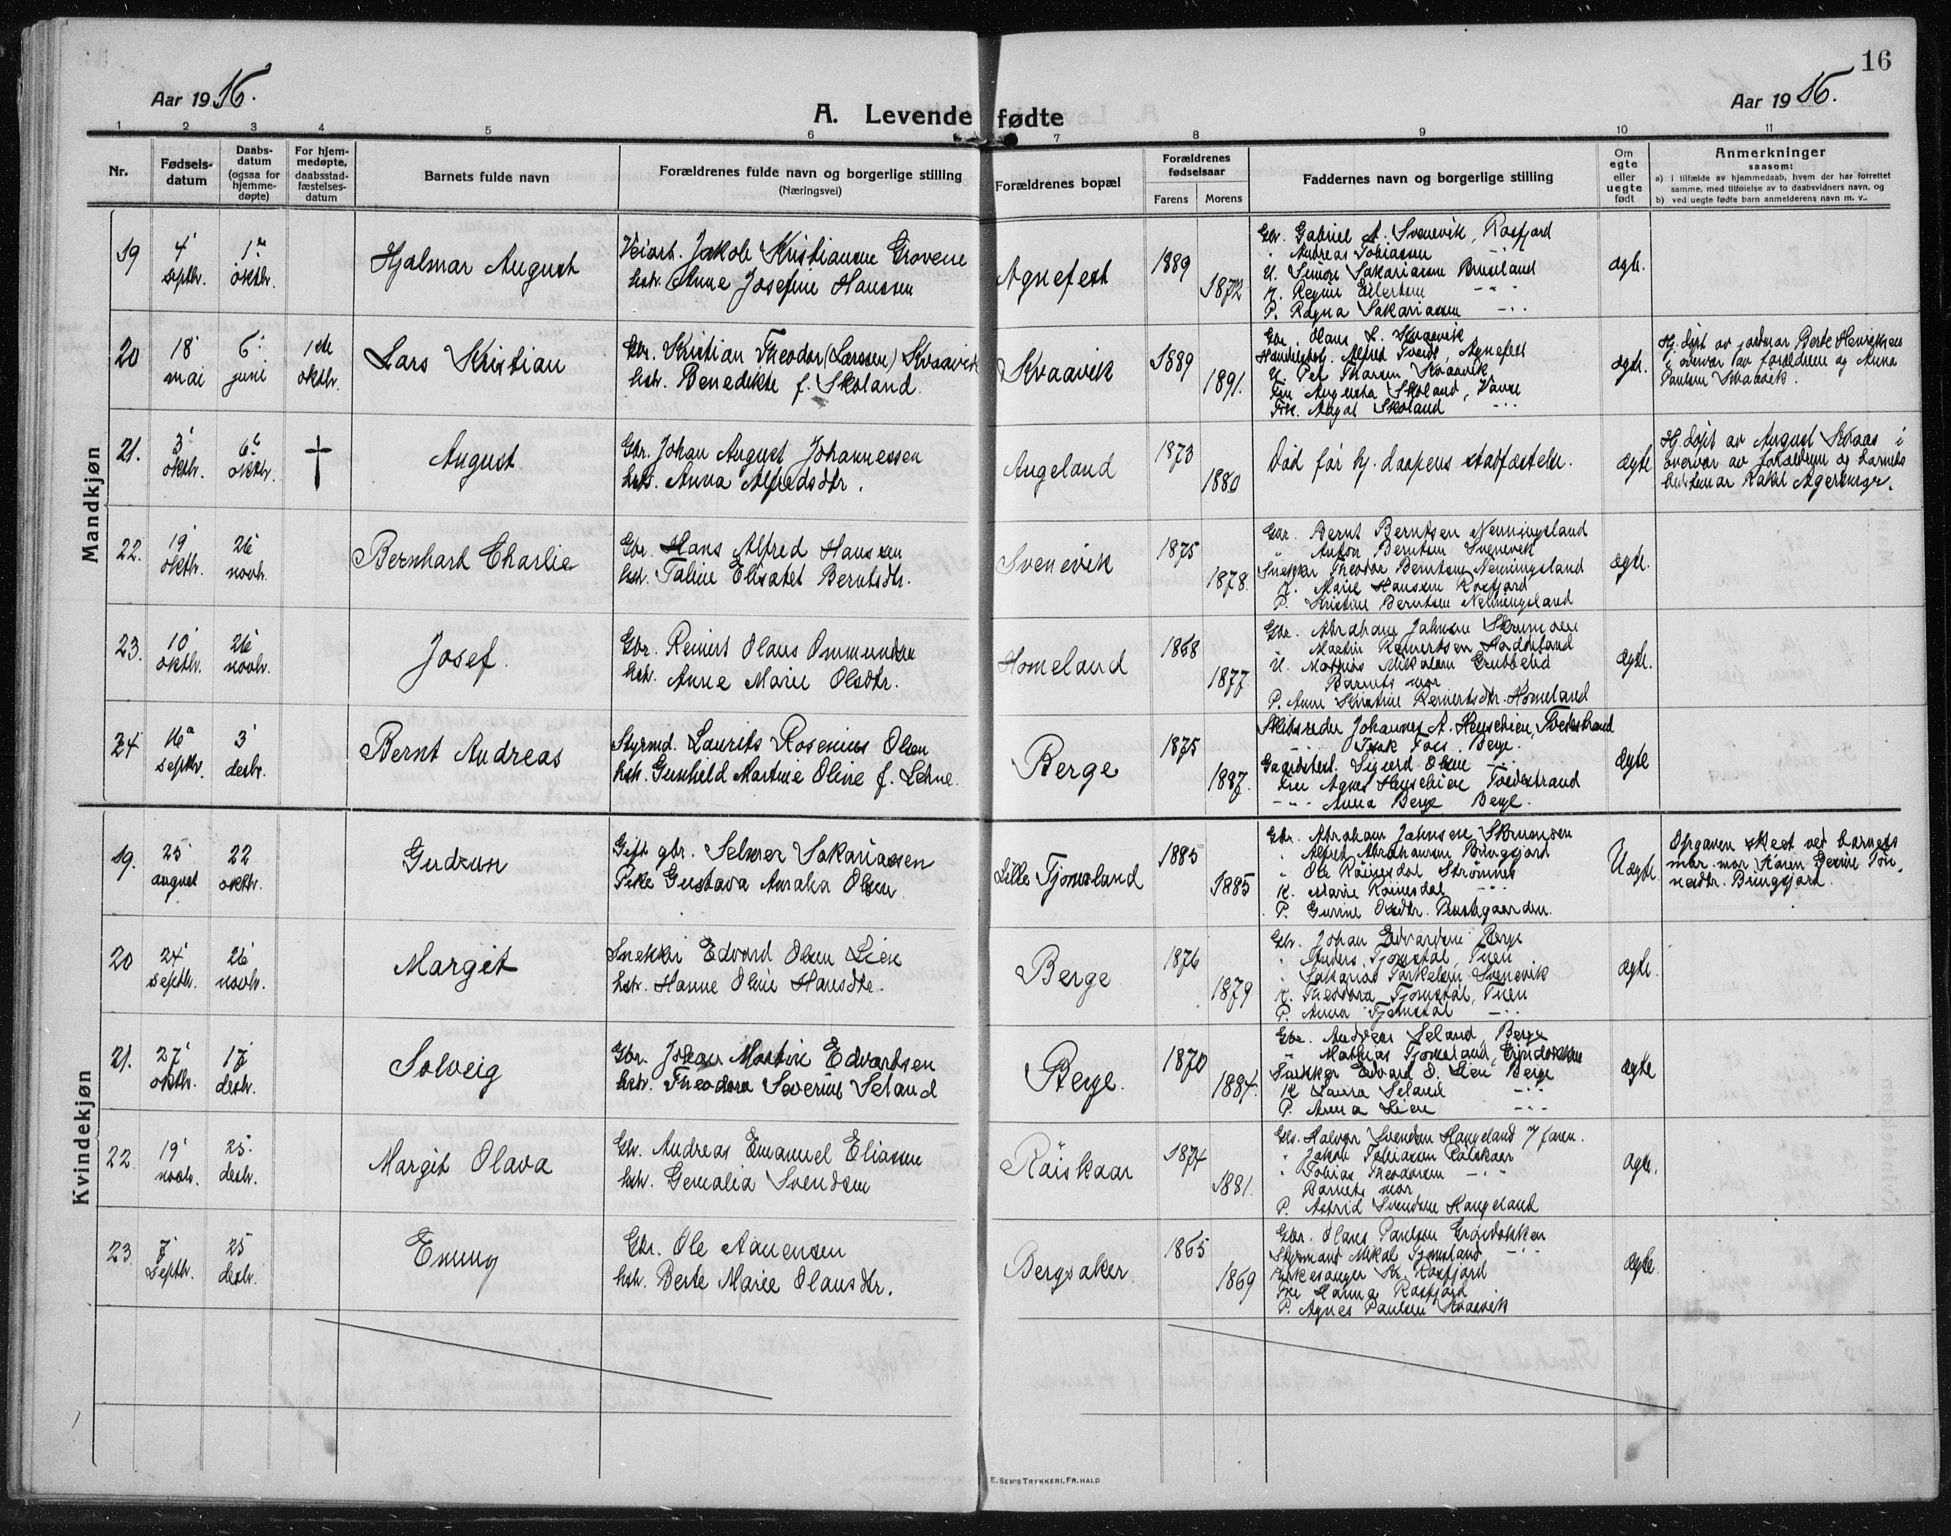 16
Aar 1916.
A. Levende fødte
Aar 1916.
1 2 3 4 5 6 7 8 9 10 11
Nr.
Fødsels-
datum
Daabs-
datum
(ogsaa for
hjemme-
døpte)
For hjem-
medøpte,
daabsstad-
fæstelses-
datum
Barnets fulde navn
Forældrenes fulde navn og borgerlige stilling
(Næringsvei)
Forældrenes bopæl
Forældrenes
fødselsaar
Farens Morens
Faddernes navn og borgerlige stilling
Om
egte
eller
uegte
født
Anmerkninger
saasom:
a) i tilfælde av hjemmedaab, hvem der har forrettet
samme, med tilføielse av to daabsvidners navn, og
b) ved uegte fødte barn anmelderens navn m. v..
Mandkjøn
19
4 septbr.
1 oktbr.
Hjalmar August
Veiarb. Jakob Kristiansen Grovene
hstr. Anne Josefine Hanssen
Agnefest
1889
1872
Gbr. Gabriel A. Svenevik, Rosfjord
" Andreas Tobiassen
U. Simon Sakariassen
K. Regine Eilertsen
P. Ragna Sakariassen
ægte.
20
18 mai
6 juni
1ste oktbr.
Lars Kristian
Gbr. Kristian Theodor (Larssen) Kvaavik
hstr. Benedikte f. Skoland.
Kvaavik
1889
1891.
Gbr. Olaus L. Kvaavik
Alfred Tveit, Agnefest
U. Per Kvaavik
Fru Augusta Skoland, Vanse
Frk. Skoland
ægte.
Hj. døpt av jordmor Berte Henriksen
i overvær av forældrene og Anna
Paulsen Kvaavik.
21.
3 oktbr.
6 oktbr.
†
August
Gbr. Johan August Johannessen
hstr. Anna Alfredsdtr.
Augeland
1873
1880
Død før hj. daapens stadfæstelse.
ægte
Hj. døpt av August Skaas i
overvær av forældrene og barnets
22.
19 oktbr.
26 novbr.
Bernhart Charlie
Gbr. Hans Alfred Hanssen
hstr. Taline Elisabet Berntsdtr.
Svenevik
1875
1878.
Gbr. Bernt Berntsen Nenningsland
" Anton Berntsen Svenevik
Snekker Theodor Berntsen Nenningsland
K. Marie Hanssen Rosfjord
P. Kristine Berntsen
ægte.
23.
10 oktbr.
26 novbr.
Josef.
Gbr. Reinert Olaus Ommundsen
hstr. Anne Marie Olsdtr.
Homeland
1868
1877
Gbr. Abraham Jahnsen Skrumoen
" Martin Reinertsen
U. Mathias Mikalsen
Barnets mor
P. Anne Kristine Reinertsdtr. Homeland
ægte.
24
16 septbr.
3 desbr.
Bernt Andreas
Styrmd. Laurits Rosenius Olsen
hstr. Gunhild Martine Oline f. Lehne.
Berge
1875
1887.
Skibsreder Johannes A. Tvedestrand
Berge.
Sigurd Olsen
Fru Agnes Tvedestrand
Anna Berge Berge.
ægte
Kvindekjøn
19.
25 august
22 oktbr.
Gudrun
Gift gbr. Selmer Sakariassen
Pike Gustava Amalia Olsen
Lille Tjomsland
1885
1885
Gbr. Abraham Jahnsen Skrumoen
" Alfred Abrahamsen Bringsjord
" Ole Røinesdal Strømnes
K. Marie Røinesdal
P. Gurine Olsdtr.
Uægte
Opgaven skeet ved barnets
mor mor Karen
Bringsjord.
20
24 septbr.
26 novbr.
Margit
Snekker Edvard Olsen Lien
hstr. Hanne Oline Hansdtr.
Berge
1876
1879
Gbr. Johan Edvardsen Berge
" Anders Tjomstøl, Tuen
" Sakarias Torkelsen Svenevik
K. Theodora Tjomstøl, Tuen
P. Anna Tjomstøl
ægte.
21.
27 oktbr.
17 desbr.
Solveig
Gbr. Johan Martin Edvartsen
hstr. Theodora Severine Seland
Berge.
1870
1884.
Gbr. Andreas Seland, Berge
" Mathias Tjomsland,
Snekker Edvard O. Lien Berge
K. Laura Seland
P. Anna Lien
ægte
22.
19 novbr.
25 desbr.
Margit Olava
Gbr. Andreas Emanuel Eliassen
hstr. Gemalia Svendsen
Røiskaar
1874
1881.
Gbr. Halvor Svendsen Haugeland
" Jakob Tobiassen Røiskaar
" Tobias Theodorsen
Barnets mor
P. Astrid Svendsen Haugeland
ægte.
23.
7 septbr.
25 desbr.
Emmy
Gbr. Ole Aanensen
hstr. Berte Marie Olausdtr.
Bergsaker.
1865
1869
Gbr. Olaus Paulsen
Styrmand Mikal Tjomsland
Kirkesanger Rosfjord
Fru Hanna Rosfjord
P. Agnes Paulsen Kvaavik
ægte.
E. SEM'S TRYKKERI, FR. HALD